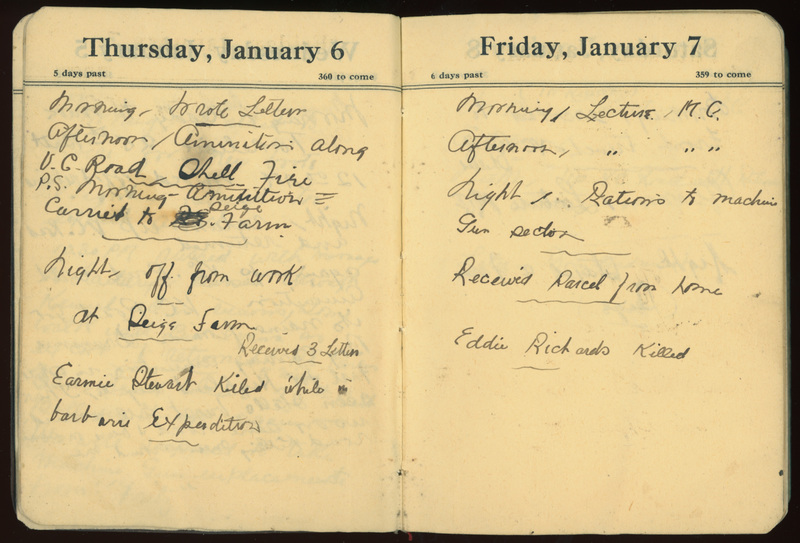 Thursday, January 6
5 days past 360 to come
Morning, Wrote Letters
Afternoon, Amunition along
V.C. Road Shell Fire
P.S. Morning - Amunition =
Carried to Seige Farm
Night, off from work
at Seige Farm
Received 3 Letters
Earnie Stewart Killed while
barb wire Expedition
Friday, January 7
6 days past 359 to come
Morning, Lecture, M.G.
Afternoon, " " "
Night, Rations to machine
Gun sector
Received Parcel from home
Eddie Richards Killed